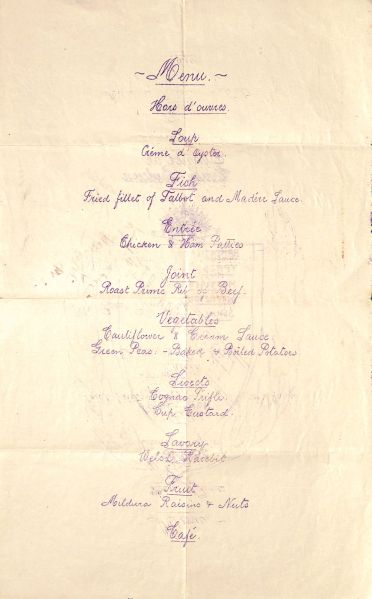 ~ Menu. ~
Hors d'ouvres.
Soup
Crème d'oyster.
Fish
Fried fillet of Talbot and Madère Sauce.
Entrée
Chicken & Ham Patties
Joint
Roast Prime Rib of Beef.
Vegetables
Cauliflower & Cream Sauce
Green Peas: - Baked & Boiled Potatoes
Sweets
Cognac Trifle.
Cup Custard.
Savory
Welsh Rarebit
Fruit
Mildura Raisins & Nuts
Café.